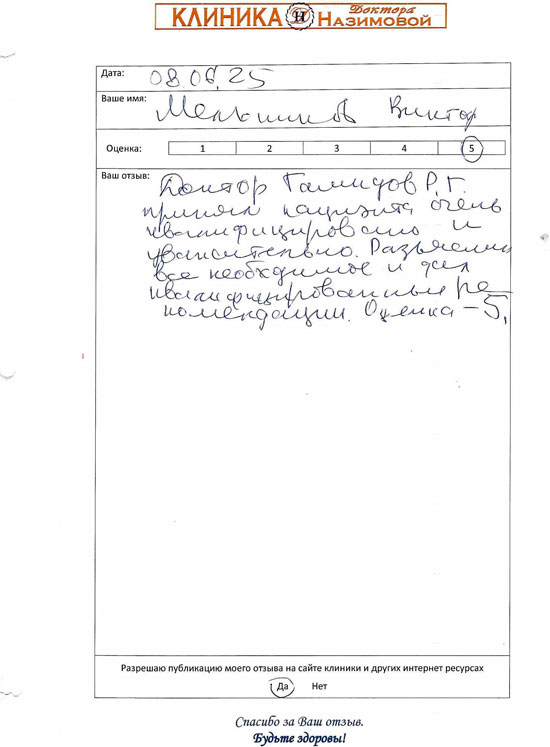 КЛИНИКА Доктора Назимовой
Дата: 08.06.25
Ваше имя: Меньшиков Виктор
Оценка: 1 2 3 4 5
Ваш отзыв: Доктор Гамидов Р.Г.
принял пациента очень
квалифицировано и
уважительно. Разъяснил
все необходимое и дал
квалифицированные ре-
комендации. Оценка – 5.
Разрешаю публикацию моего отзыва на сайте клиники и других интернет ресурсах
Да Нет
Спасибо за Ваш отзыв.
Будьте здоровы!